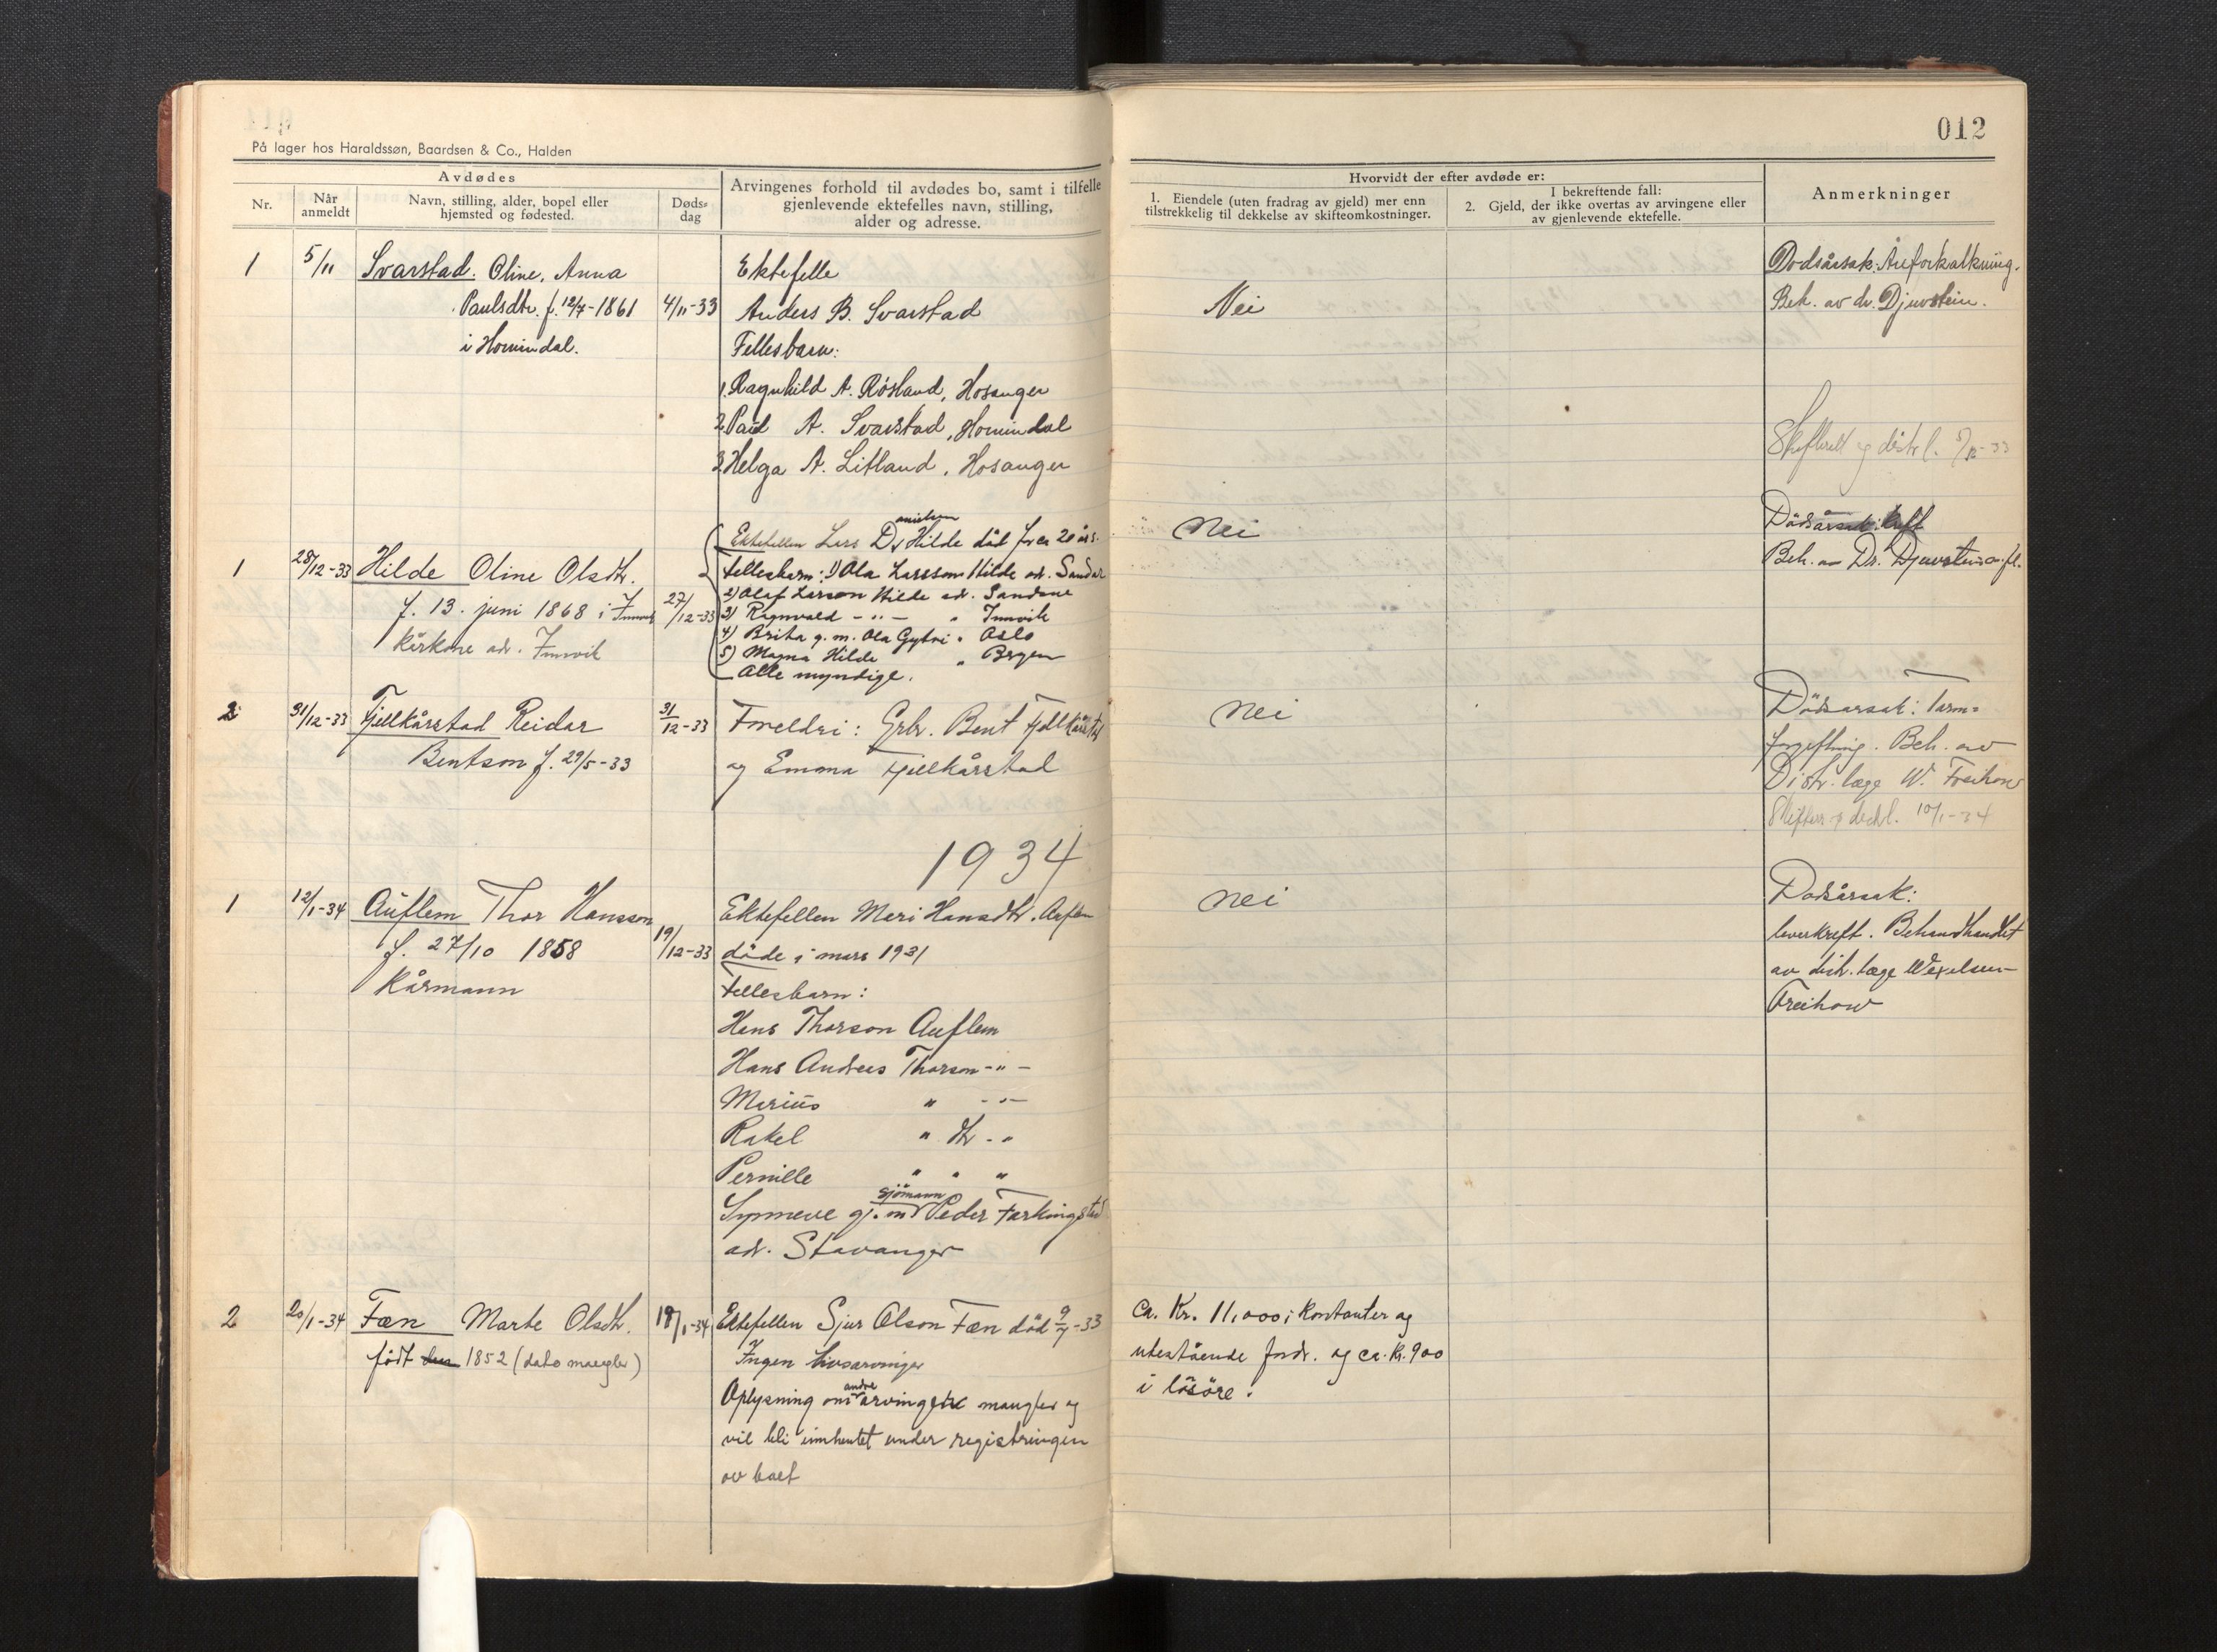 På lager hos Haraldssøn, Baardsen & Co., Halden
Avdødes
Nr.
Når anmeldt
Navn, stilling, alder, bopel eller
hjemsted og fødested.
Døds-
dag
Arvingenes forhold til avdødes bo, samt i tilfelle
gjenlevende ektefelles navn, stilling,
alder og adresse.
1 5/11 Svarstad. Oline, Anna
Paulsdtr. f. 12/7-1861 4/11-33
i Hornindal.
Ektefelle
Anders B. Svarstad
Fellesbarn:
1. Ragnhild A. Røsland, Hosanger
2. Paul A. Svarstad, Hornindal
3. Helga A. Litland, Hosanger
1 28/12-33 Hilde Oline Olsdtr.
f. 13. juni 1868 i Innvik 27/12-33
kårkone adr. Innvik
Ektefellen Lars Danielsen Hilde död for ca 20 år s.
Fellesbarn: 1) Ola Larsson Hilde adr. Sandane
2) Olaf Larsson Hilde adr. Sandane
3) Ragnvald -"- " Innvik
4) Brita g.m. Ola Gytri " Oslo
5) Magna Hilde " Bergen
Alle myndige.
2 31/12-33 Fjellkårstad Reidar 31/12-33
Bentson f. 29/5-33
Foreldri: Grbr. Bent Fjellkårstad
og Emma Fjellkårstad
1934
1 12/1-34 Auflem Thor Hansson
f. 27/10 1858 19/12-33
Kårmann
Ektefellen Mari Hansdtr. Auflem
döde i mars 1931
Fellesbarn:
Hans Thorson Auflem
Hans Andreas Thorson -"-
Marius " -"-
Rakel " dtr -"
Pernille " " "
Synneve gj. m sjömann Peder Farkingstad
adr. Stavanger
2 20/1-34 Fæn Marte Olsdtr. 18/1-34
födt den 1852 (dato mangler)
Ektefellen Sjur Olson Fæn död 9/7-33
Ingen livsarvinger
Oplysning om andre arvinger mangler og
vil bli innhentet under registringen
av boet
012
Hvorvidt der efter avdøde er:
1. Eiendele (uten fradrag av gjeld) mer enn
tilstrekkelig til dekkelse av skifteomkostninger.
I bekreftende fall:
2. Gjeld, der ikke overtas av arvingene eller
av gjenlevende ektefelle.
Anmerkninger
Nei
Dødsårsak: Åreforkalkning.
Beh. av dr. Djuvstein.
5/12-33
Nei
Dödsårsak: kreft
Beh. av Dr. Djuvstein o. fl.
Nei
Dödsarsak: Tarm=
forgiftning. Beh. av
Distr. læge W. Freihow
10/1-34
Nei
Dödsårsak:
leverkreft. Behandhandlet
av distr. læge Wexelsen-
Freihow
Ca. Kr. 11,000 i kontanter og
utestående fordr. og ca. kr. 900
i lösöre.